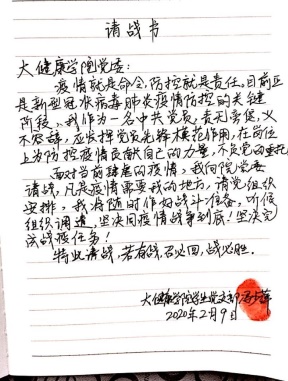 请战书
大健康学院党委:
疫情就是命令,防控就是责任。目前正
是新型冠状病毒肺炎疫情防控的关键
阶段,我作为一名中共党员,责无旁贷,义
不容辞,应发挥党员先锋模范作用,在岗位
上为防控疫情贡献自己的力量,不负党的重托
面对当前肆虐的疫情,我向院党委
请战,凡是疫情需要我的地方,请党组织
安排,我将随时作好战斗准备,听候
组织调遣,坚决同疫情战争到底!坚决完
成战疫任务!
特此请战,若有战,召必回,战必胜。
大健康学院学生党支部
2020年2月9日